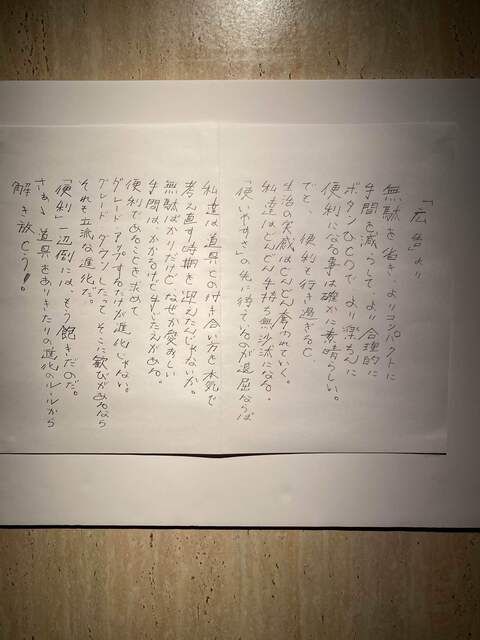 「広告」より
無駄を省き、よりコンパクトに
手間を減らして、より合理的に
ボタンひとつで、より楽ちんに
便利になる事は確かに素晴らしい。
でも、便利も行き過ぎると
生活の実感はどんどん奪われていく。
私達はどんどん手持ち無沙汰になる。
「使いやすさ」の先に待っているのが退屈ならば
私達は道具との付き合い方を本気で
考え直す時期を迎えたんじゃないか。
無駄ばかりだけど なぜか愛おしい
手間は、かかるけど手ごたえがある。
便利であることを求めて
グレードアップするだけが進化じゃない。
グレードダウンしたって そこに歓びがあるなら
それも立派な進化だ。
「便利」一辺倒には、もう飽きたのだ。
さぁ、道具をありきたりの進化のルールから
解き放とう！。